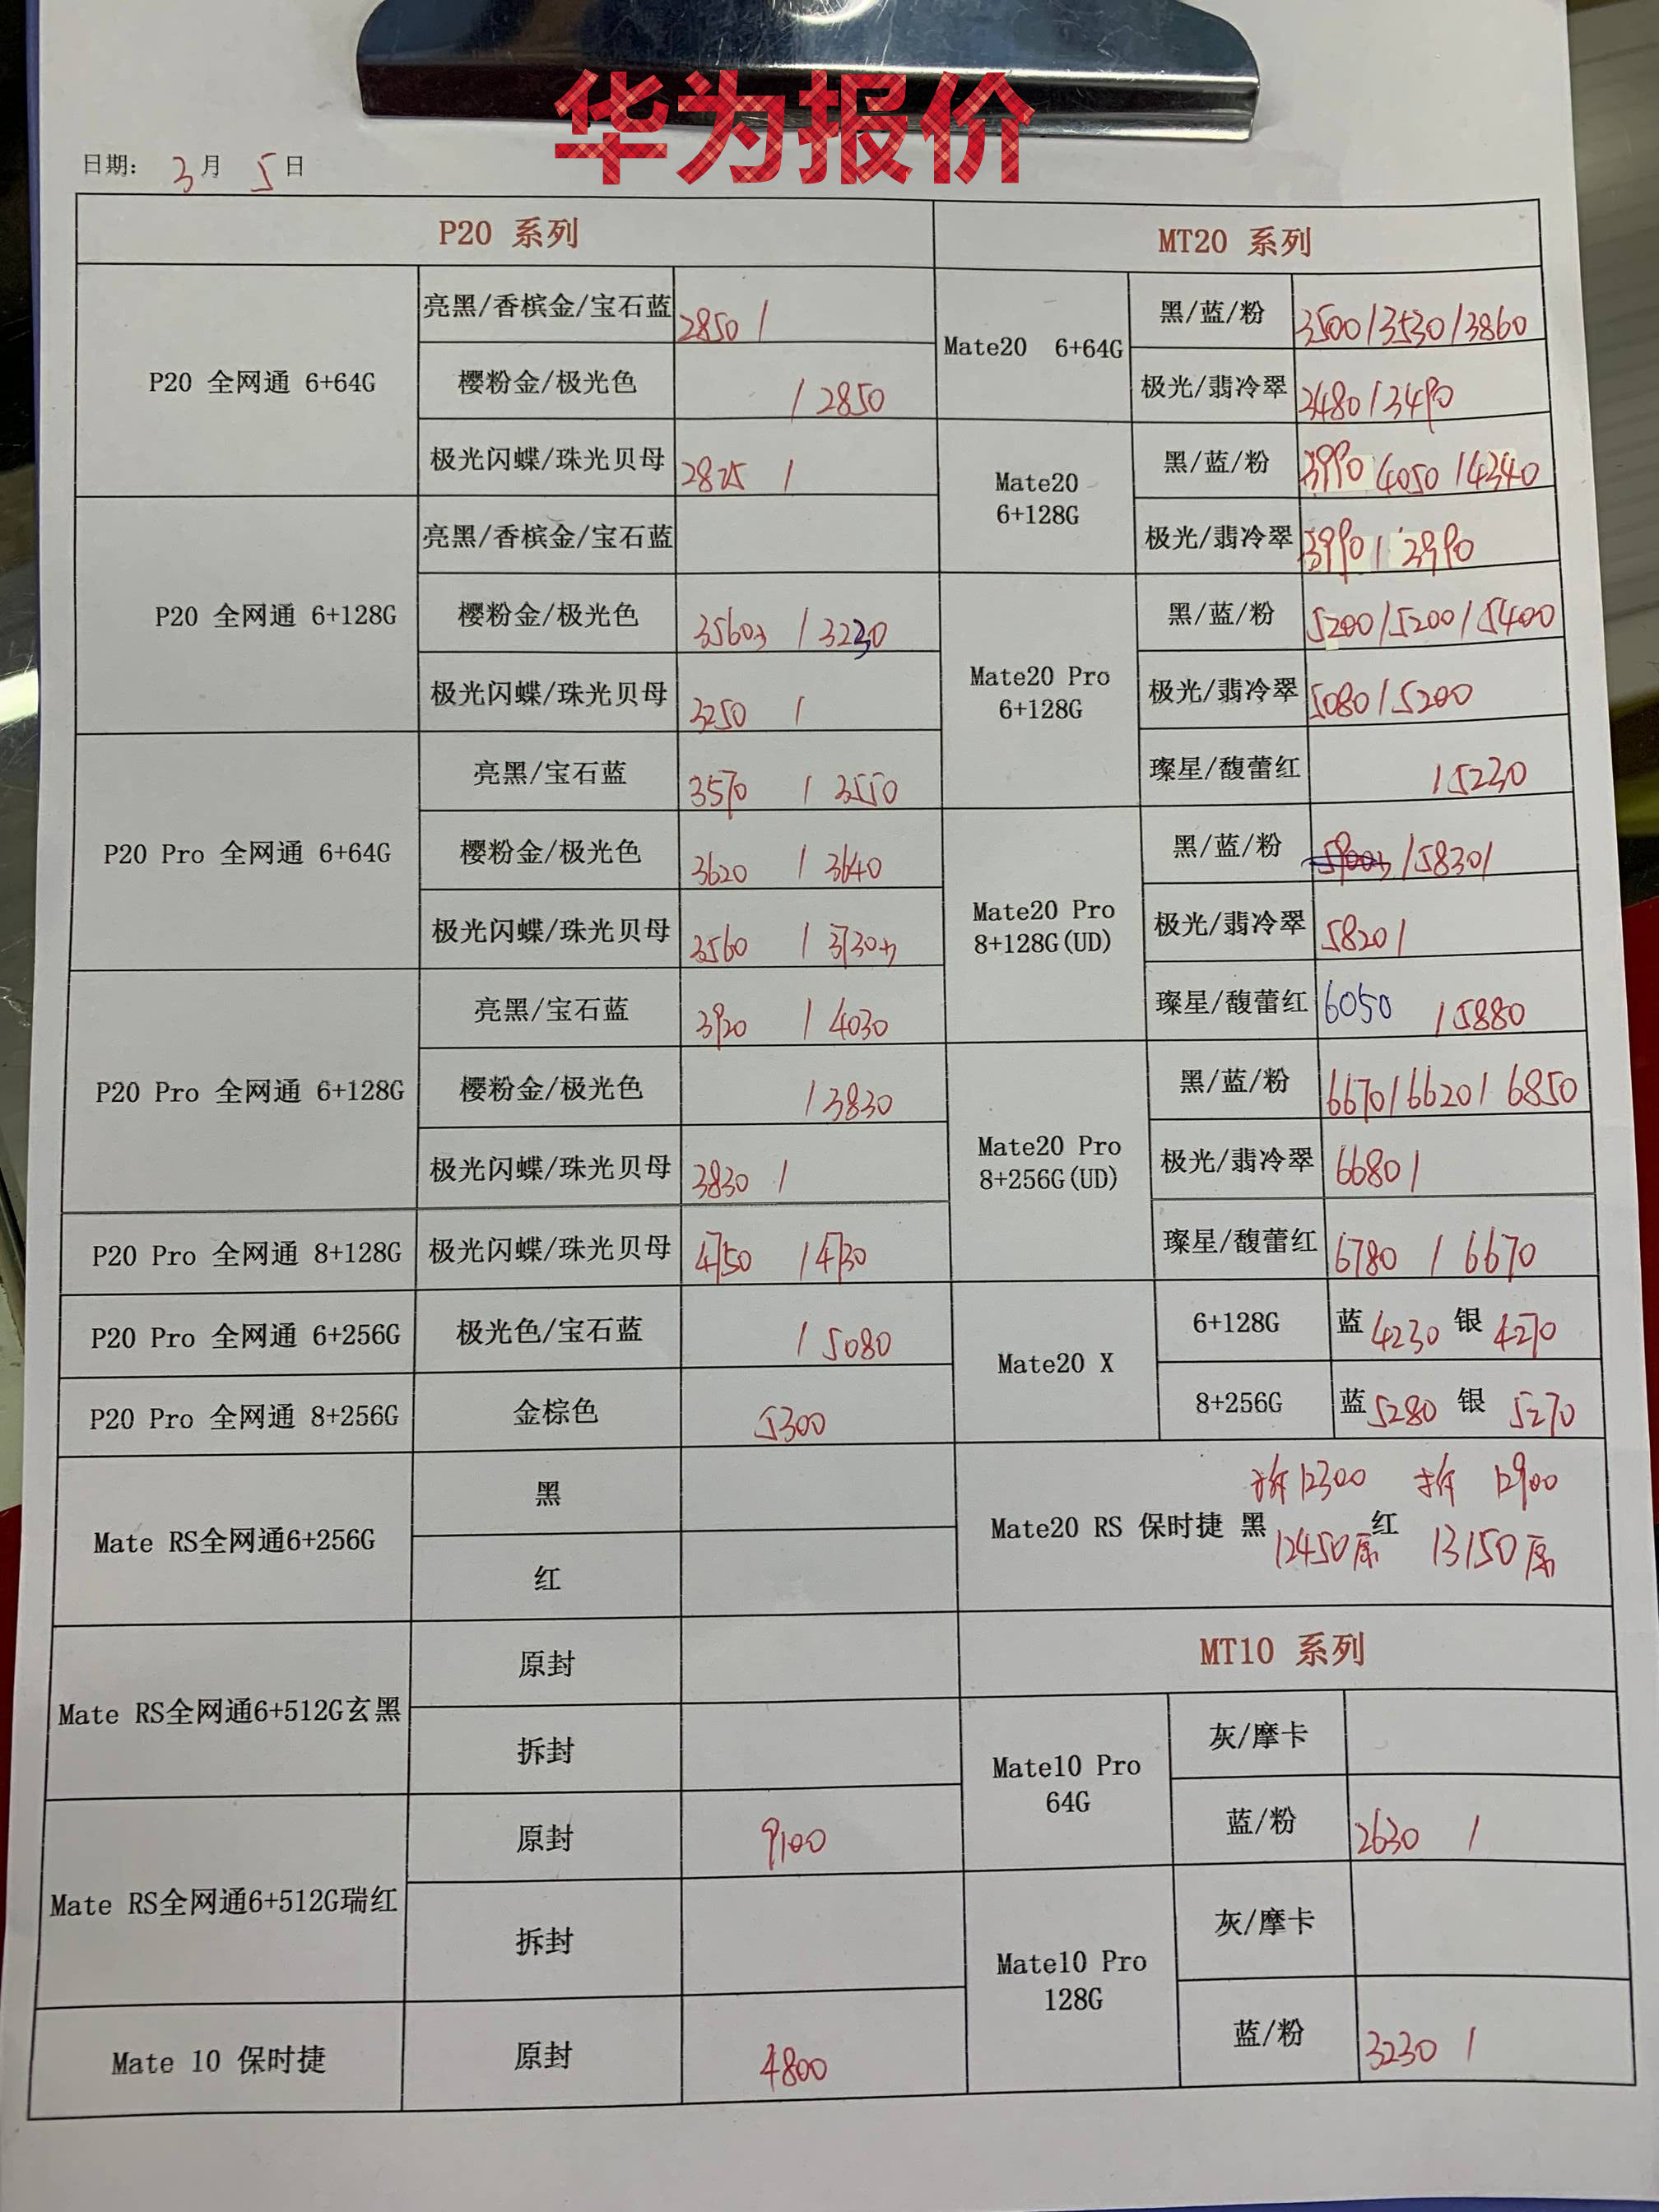 华为报价
日期: 3月 5日
P20 系列
P20 全网通 6+64G
亮黑/香槟金/宝石蓝 2850 /
樱粉金/极光色 / 2850
极光闪蝶/珠光贝母 2875 /
P20 全网通 6+128G
亮黑/香槟金/宝石蓝
樱粉金/极光色 3560 / 3230
极光闪蝶/珠光贝母 3250 /
P20 Pro 全网通 6+64G
亮黑/宝石蓝 3570 / 3550
樱粉金/极光色 3620 / 3640
极光闪蝶/珠光贝母 3560 / 3730
P20 Pro 全网通 6+128G
亮黑/宝石蓝 3920 / 4030
樱粉金/极光色 / 3830
极光闪蝶/珠光贝母 3830 /
P20 Pro 全网通 8+128G 极光闪蝶/珠光贝母 4750 / 4730
P20 Pro 全网通 6+256G 极光色/宝石蓝 / 5080
P20 Pro 全网通 8+256G 金棕色 5300
Mate RS全网通6+256G
黑
红
Mate RS全网通6+512G玄黑
原封
拆封
Mate RS全网通6+512G瑞红
原封 9100
拆封
Mate 10 保时捷 原封 4800
MT20 系列
Mate20 6+64G
黑/蓝/粉 3500/3530/3860
极光/翡冷翠 3480/3490
Mate20
6+128G
黑/蓝/粉 3990 4050/4340
极光/翡冷翠 3990/3990
Mate20 Pro
6+128G
黑/蓝/粉 5200/5200/5400
极光/翡冷翠 5080/5200
璨星/馥蕾红 /5230
Mate20 Pro
8+128G(UD)
黑/蓝/粉 /5830/
极光/翡冷翠 5820/
璨星/馥蕾红 6050 /5880
Mate20 Pro
8+256G(UD)
黑/蓝/粉 6670/6620/6850
极光/翡冷翠 6680/
璨星/馥蕾红 6780 / 6670
Mate20 X
6+128G 蓝 4230 银 4270
8+256G 蓝 5280 银 5270
拆12300 拆 12900
Mate20 RS 保时捷 黑 红
12450原 13150原
MT10 系列
Mate10 Pro
64G
灰/摩卡
蓝/粉 2630 /
Mate10 Pro
128G
灰/摩卡
蓝/粉 3230 /